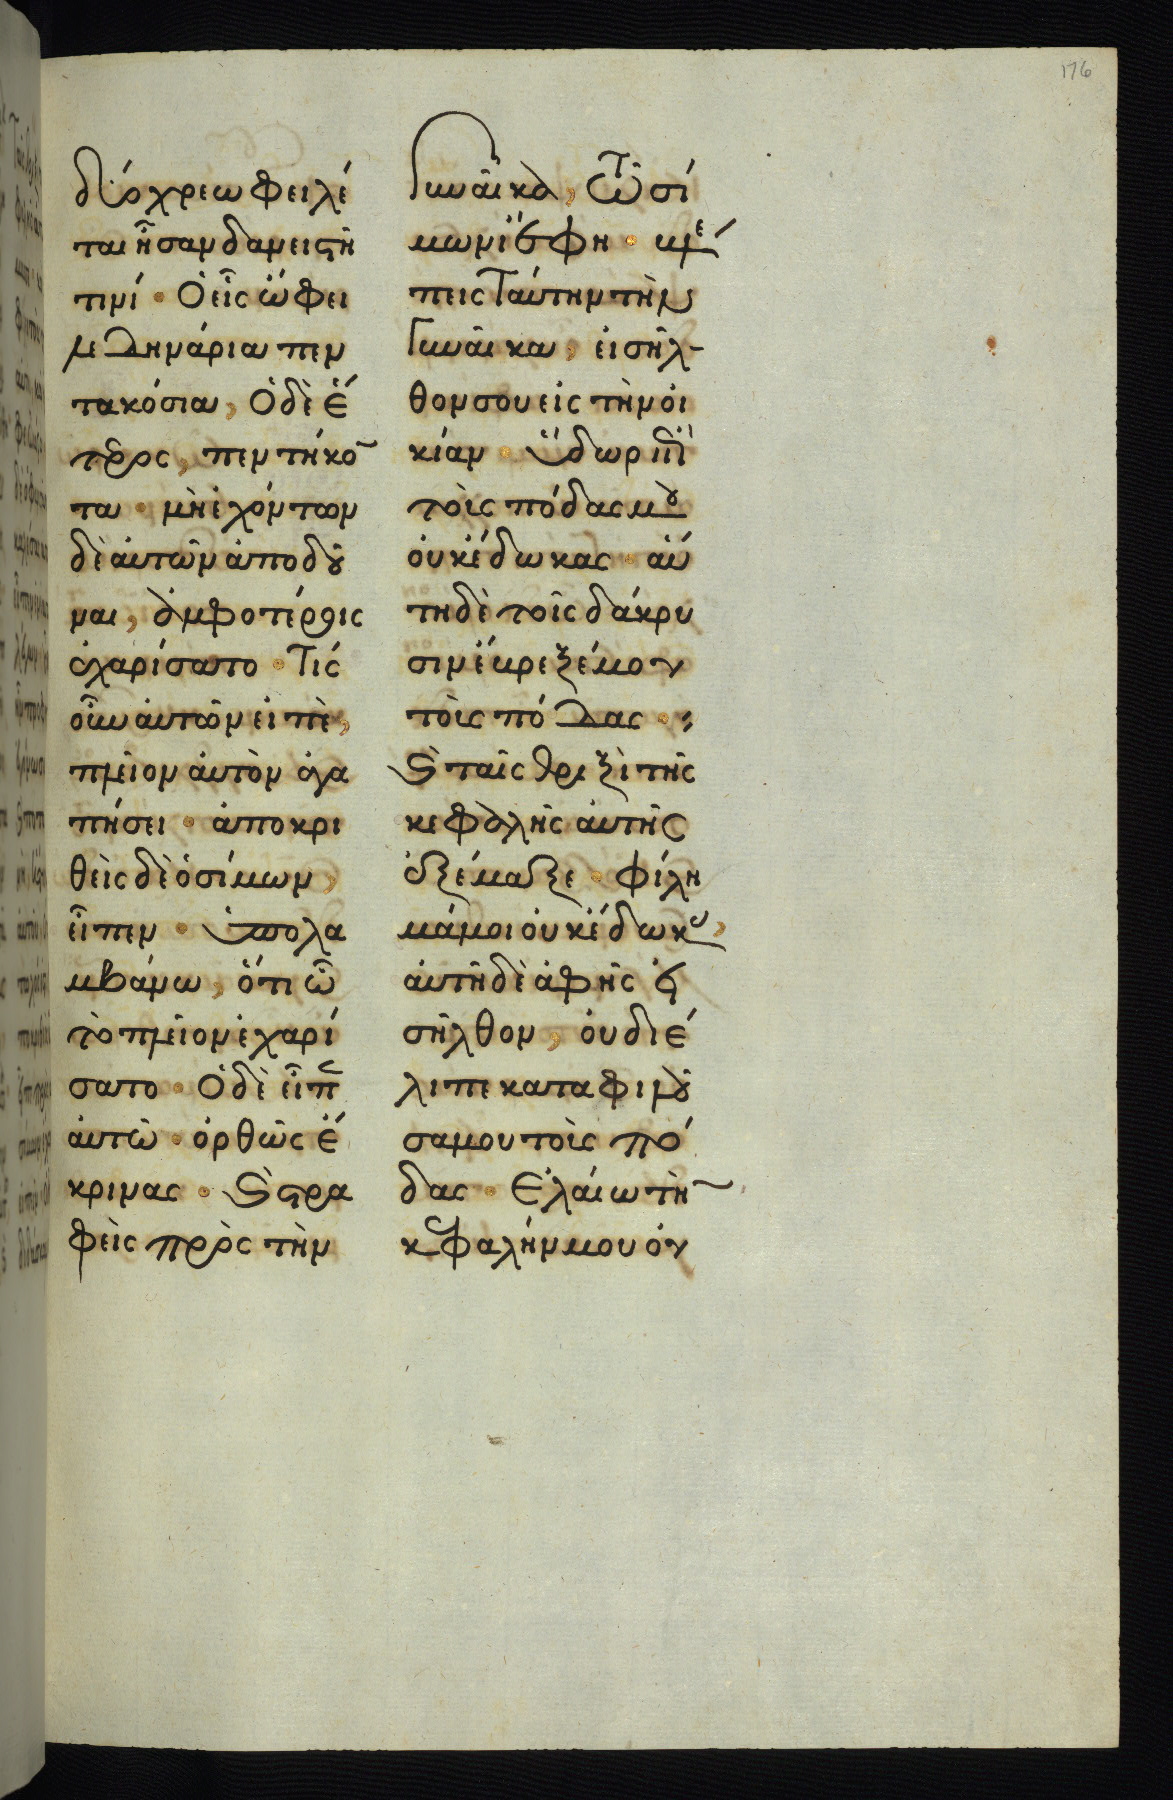 176
δύο χρεωφειλέ
ται ἦσαν δανειστῆ
τινί · Ὁ εἷς ὤφει
λε δηνάρια πεν
τακόσια, Ὁ δὲ ἕ
τερος, πεντήκο
τα · μὴ ἐχόντων
δὲ αὐτῶν ἀποδοῦ
ναι, ἀμφοτέροις
ἐχαρίσατο · Τίς
οὖν αὐτῶν εἰπὲ,
πλεῖον αὐτὸν ἀγα
πήσει · ἀποκρι
θεὶς δὲ ὁ σίμων,
εἶπεν · ὑπολα
μβάνω, ὅτι ᾧ
τὸ πλεῖον ἐχαρί
σατο · Ὁ δὲ εἶπ
αὐτῶ · ὀρθῶς ἔ
κρινας · Ϗ στρα
φεὶς πρὸς τὴν
Γυναῖκα, τῶ σί
μωνι ἔφη · βλέ
πεις ταύτην τὴν
Γυναῖκα, εἰσῆλ
θον σου εἰς τὴν οἰ
κίαν · ὕδωρ ἐπὶ
τοὺς πόδας μου
οὐκ ἔδωκας · αὕ
τη δὲ τοῖς δάκρυ
σιν ἔβρεξέ μου
τοὺς πόδας · ,
Ϗ ταῖς θριξὶ τῆς
κεφαλῆς αὐτῆς
ἐξέμαξε · φίλη
μά μοι οὐκ ἔδωκας,
αὐτὴ δὲ ἀφῆς εἰ
σῆλθον, οὐ διέ
λιπε καταφιλοῦ
σα μου τοὺς πό
δας · Ἐλαίω τὴ
κεφαλήν μου οὐ